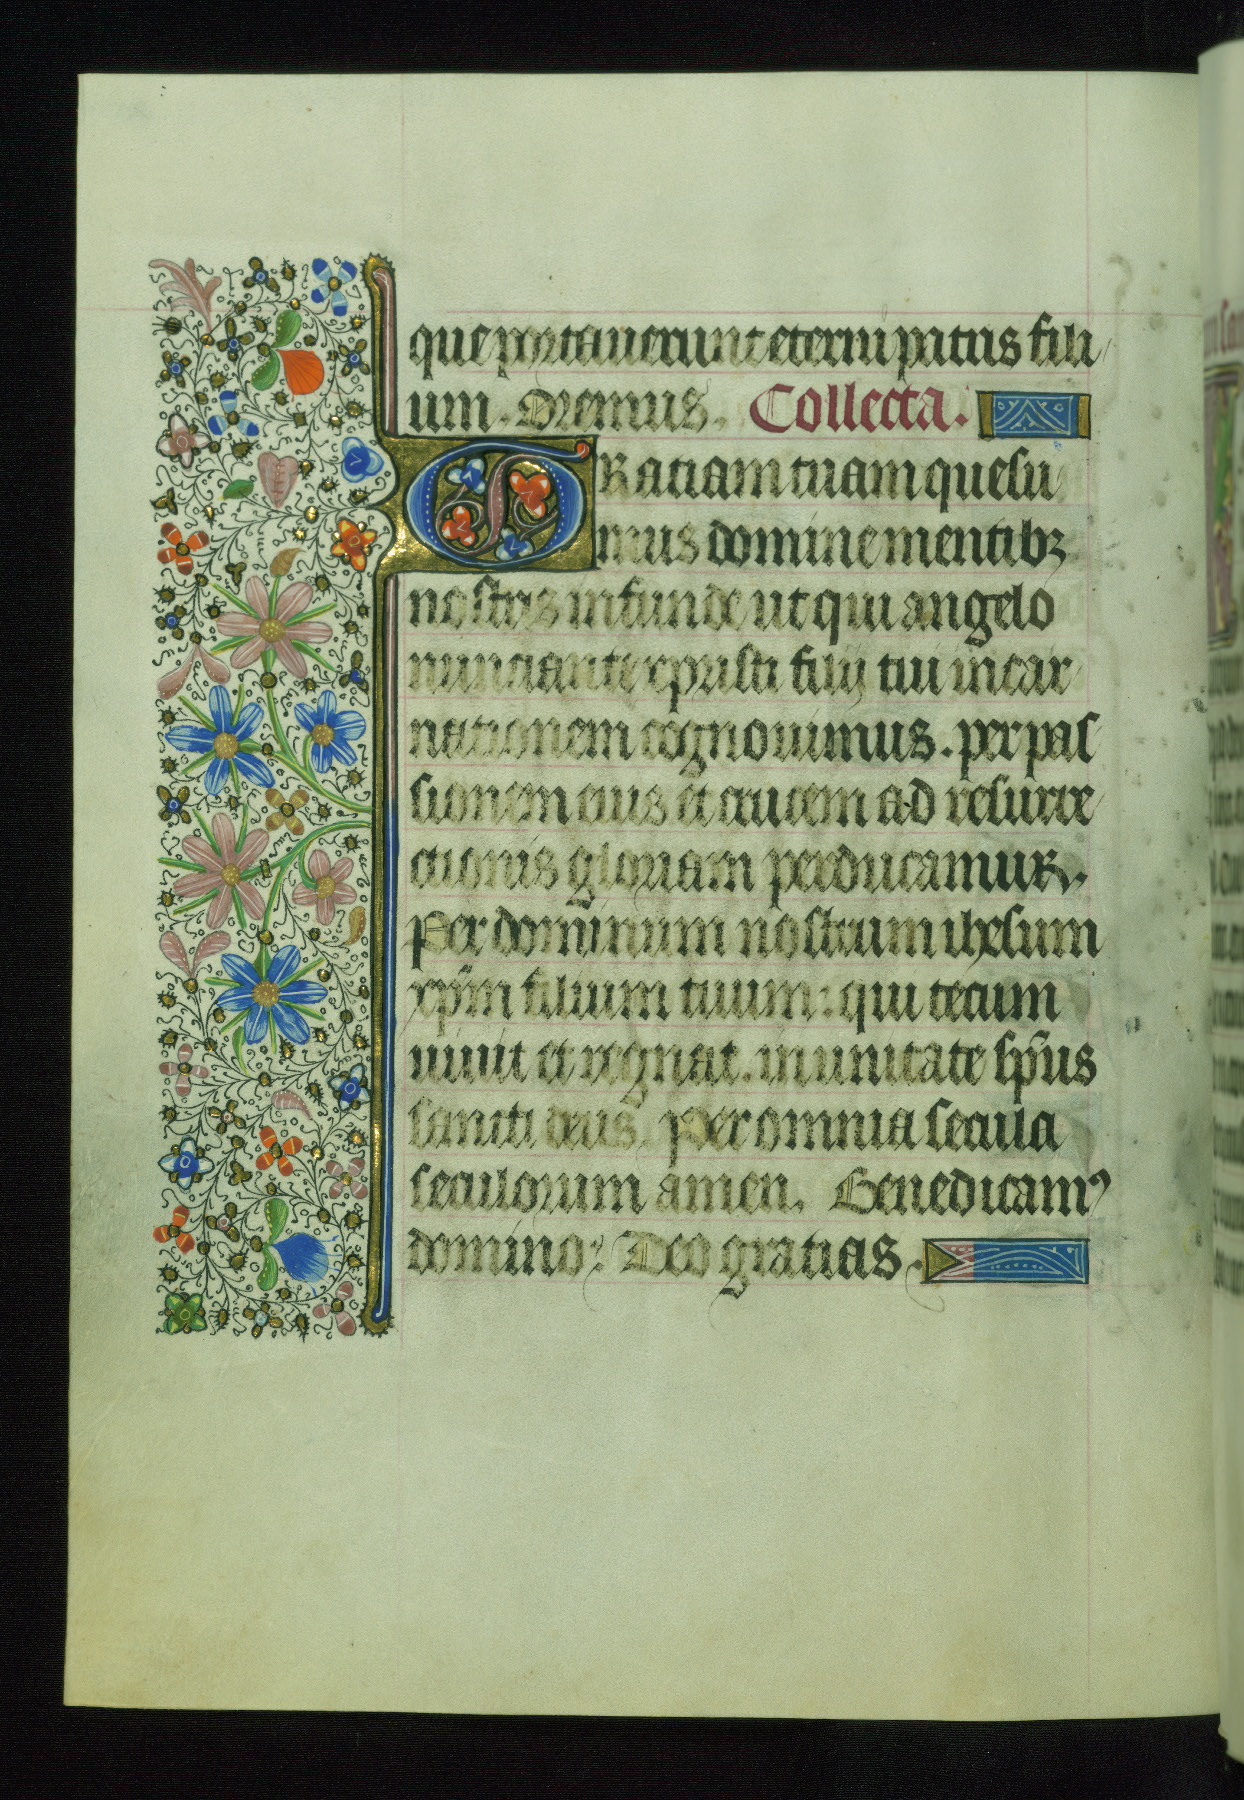 que portauerunt eterni patris fili
um. Oremus. Collecta.
GRatiam tuam quesu
mus domine mentibꝫ
nostris infunde ut qui angelo
nunciante xpristi filij tui incar
nationem cognouimus. per pas
sionem eius et crucem ad resurre
ctionis gloriam perducamur.
Per dominum nostrum ihesum
xp̄m filium tuum: qui tecum
uiuit et regnat. in unitate sp̄us
sancti deus. Per omnia secula
seculorum amen. Benedicamꝰ
domino: Deo gratias.